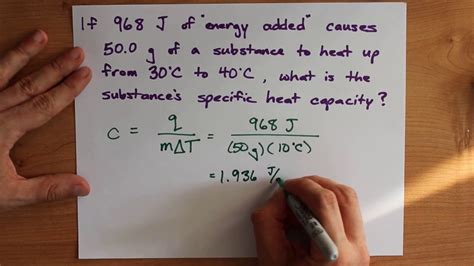 If 968 J of "energy added" causes
50.0 g of a substance to heat up
from 30°C to 40°C, what is the
substance's specific heat capacity?
c = q / mΔT = 968 J / (50 g)(10°C)
= 1.936 J/